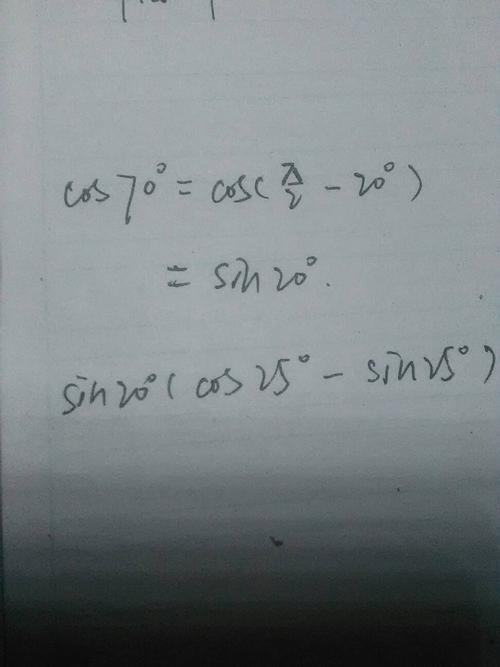 cos70°=cos(π/2-20°)
=sin20°.
sin20°(cos25°-sin25°)